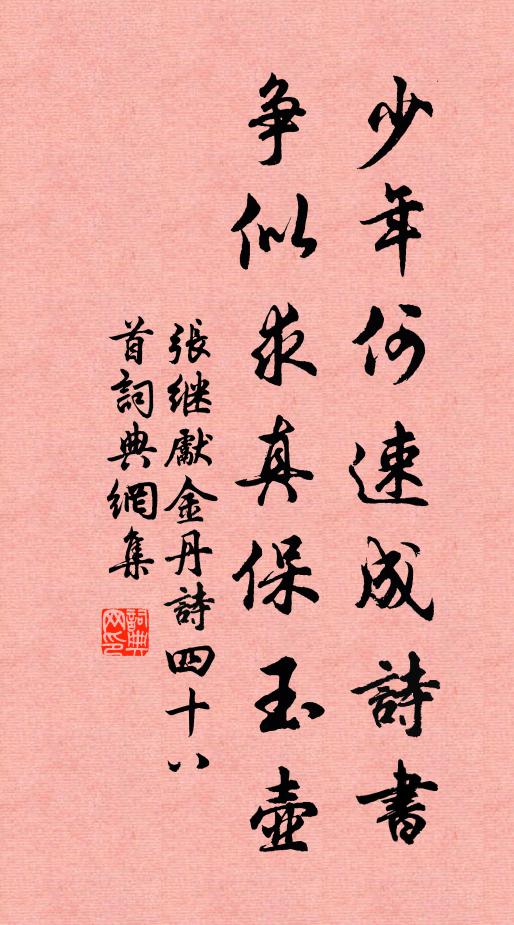 少年何速成詩書
争似求真保玉壺
張继獻金丹詩四十八
首詞典網集
詞典網印